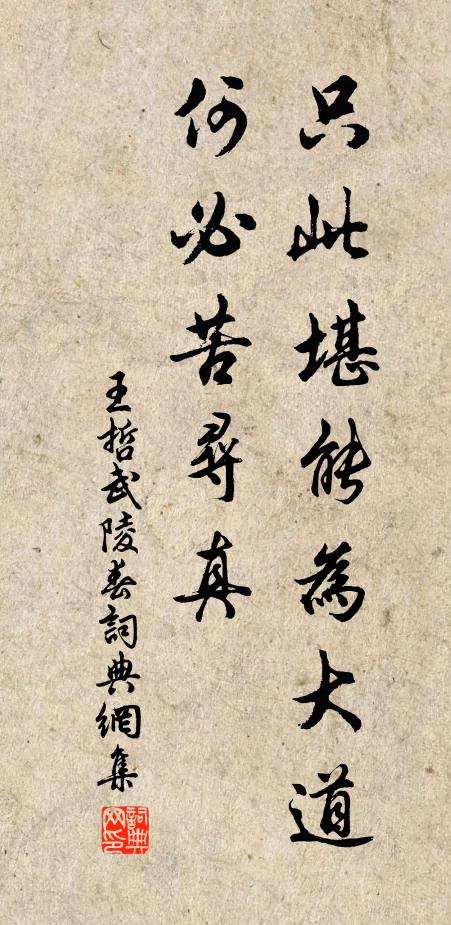 只此堪能為大道
何必苦尋真
王哲武陵春詞典網集
詞典網印